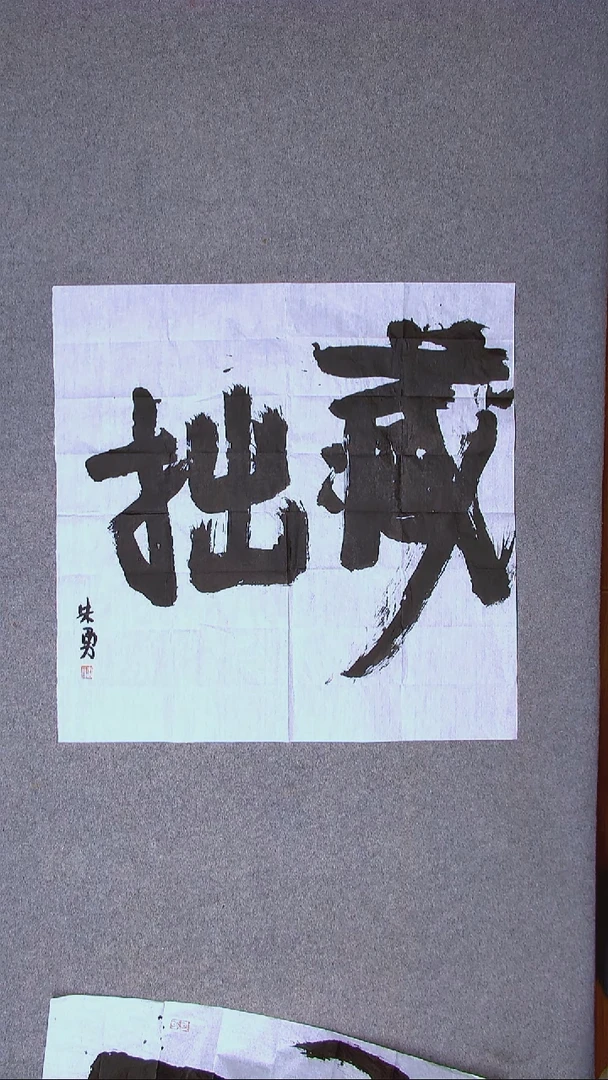 藏拙
朱勇